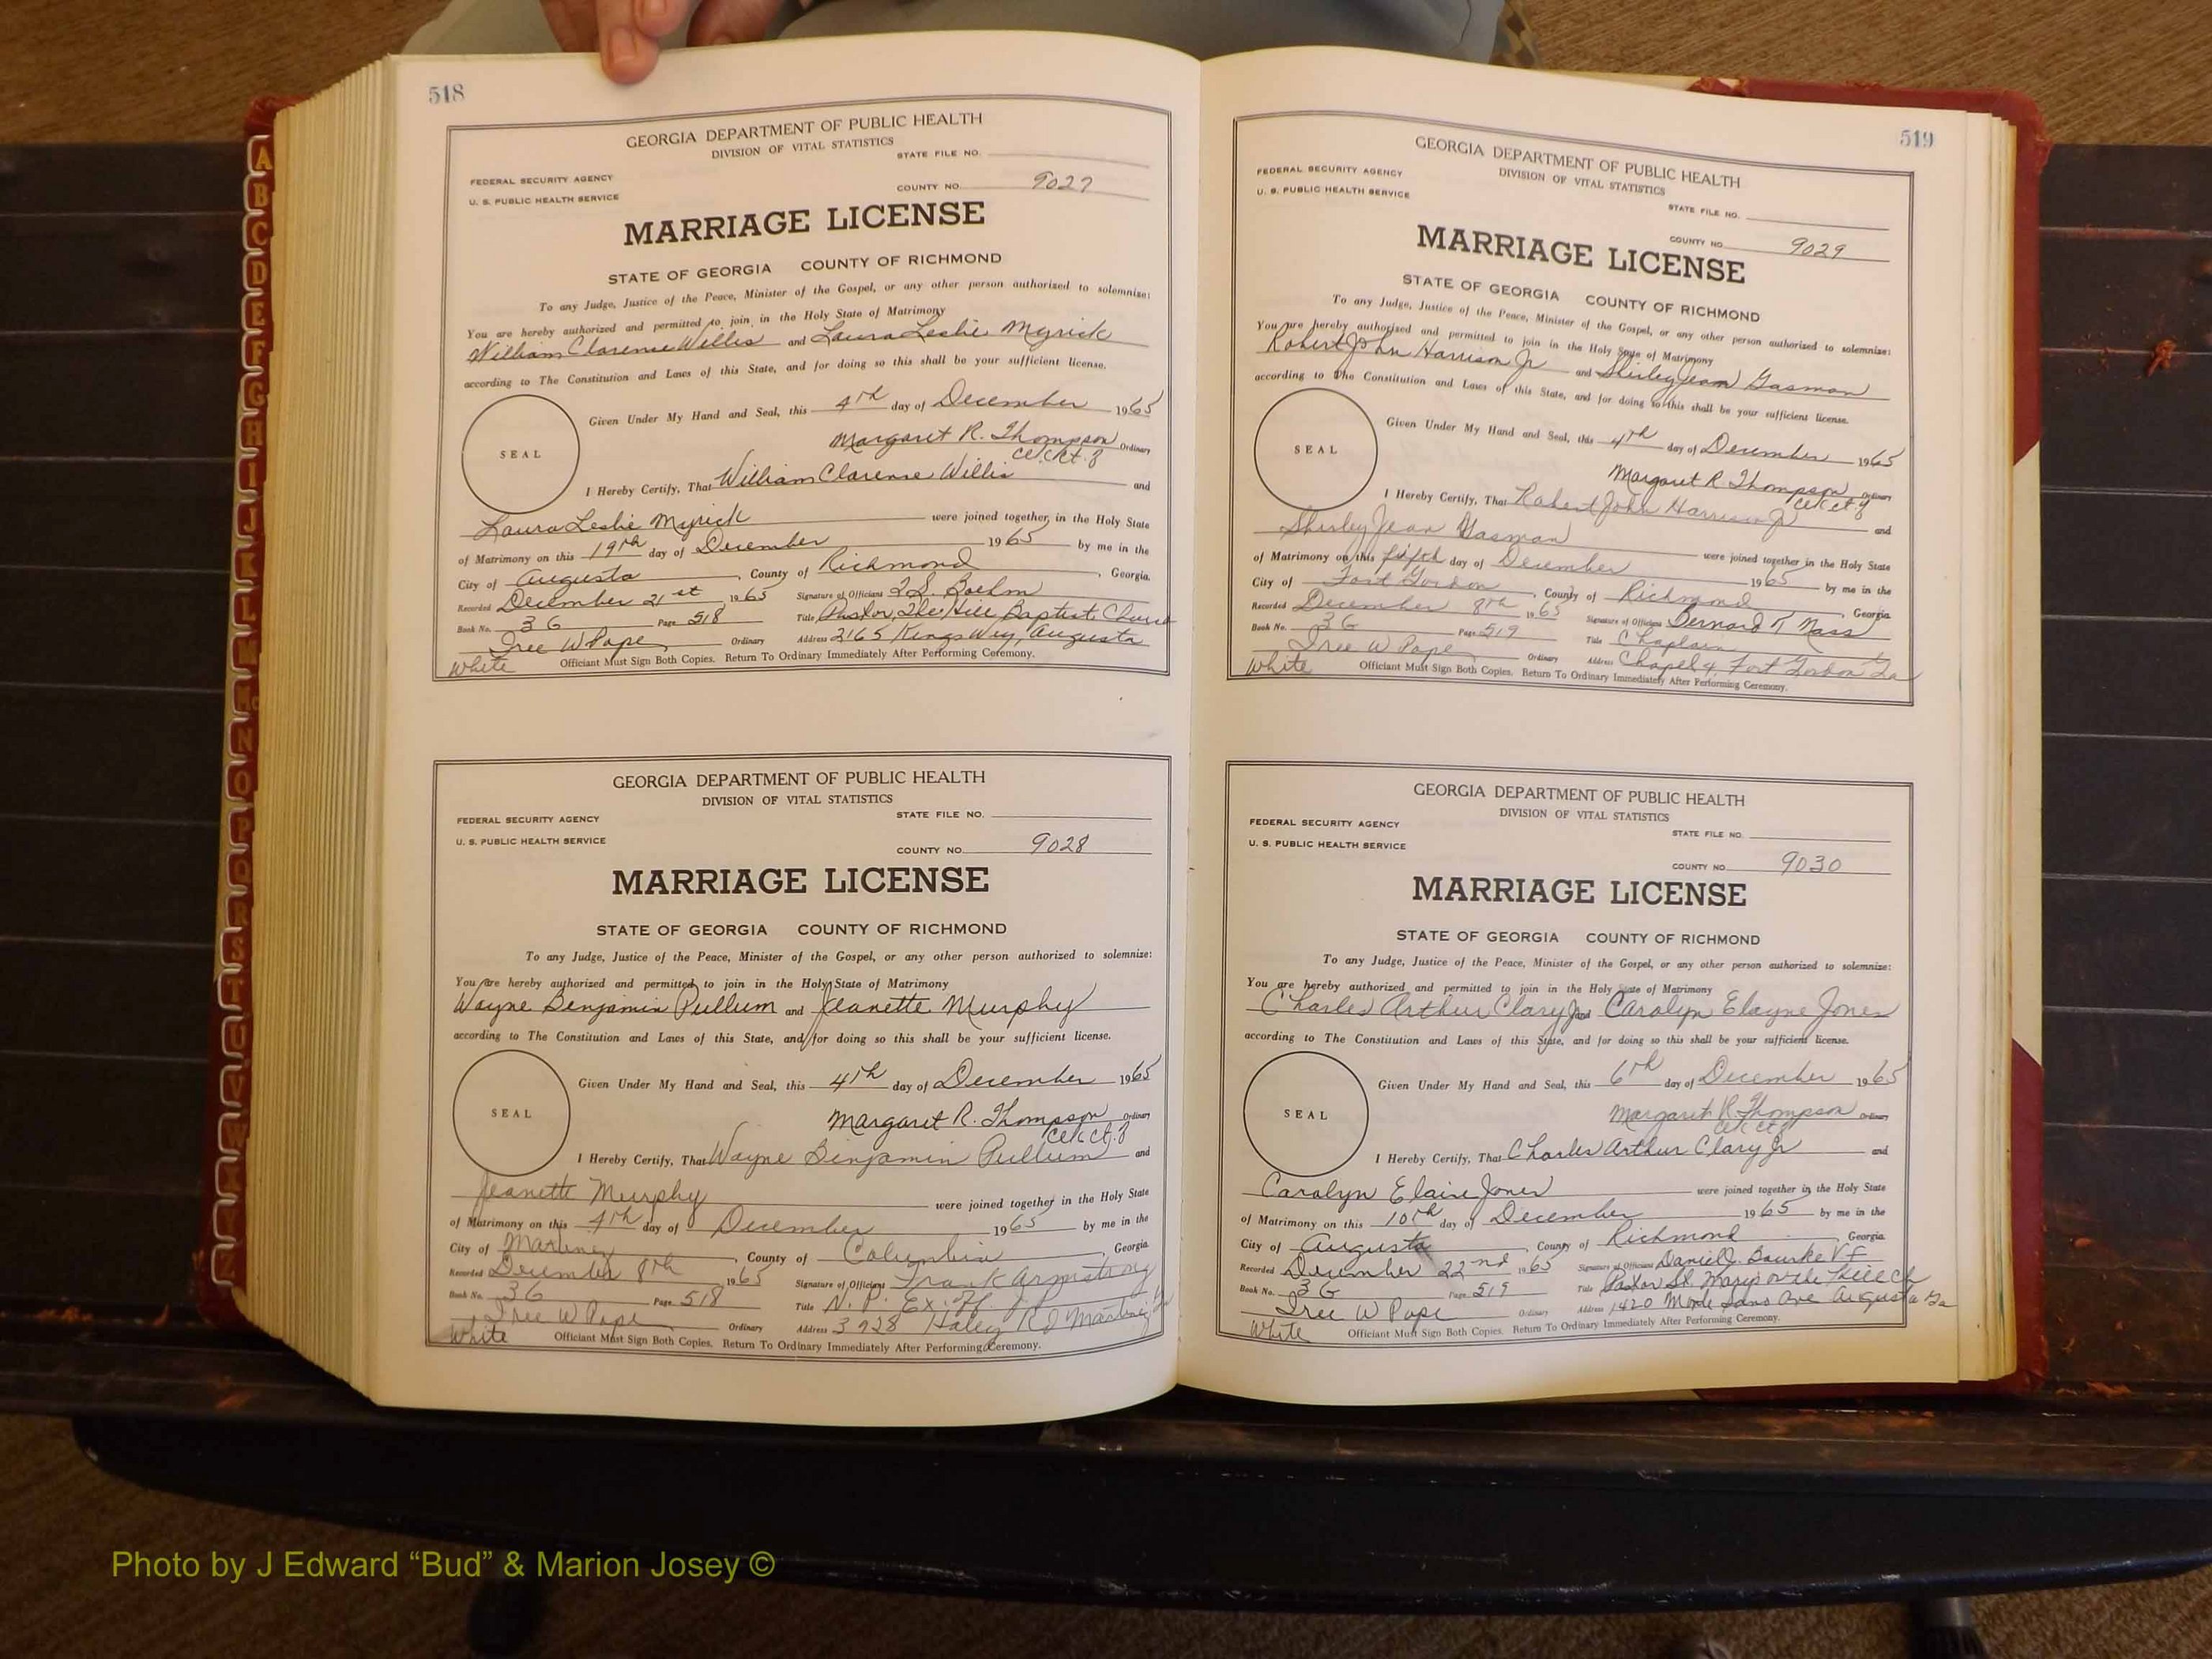 518
GEORGIA DEPARTMENT OF PUBLIC HEALTH
DIVISION OF VITAL STATISTICS
STATE FILE NO.
FEDERAL SECURITY AGENCY
U. S. PUBLIC HEALTH SERVICE
COUNTY NO. 9027
MARRIAGE LICENSE
STATE OF GEORGIA COUNTY OF RICHMOND
To any Judge, Justice of the Peace, Minister of the Gospel, or any other person authorized to solemnize:
You are hereby authorized and permitted to join in the Holy State of Matrimony
William Clarence Willis and Laura Leslie Myrick
according to The Constitution and Laws of this State, and for doing so this shall be your sufficient license.
Given Under My Hand and Seal, this 4th day of December 1965
SEAL
Margaret R. Thompson Ordinary
I Hereby Certify, That William Clarence Willis and
Laura Leslie Myrick were joined together in the Holy State
of Matrimony on this 19th day of December 1965 by me in the
City of Augusta, County of Richmond, Georgia.
Recorded December 21st 1965 Signature of Officiant Boehm
Book No. 3G Page 518 Title Pastor, Hill Baptist Church
Ordinary Address 3165 Kings Way, Augusta
White Officiant Must Sign Both Copies. Return To Ordinary Immediately After Performing Ceremony.
GEORGIA DEPARTMENT OF PUBLIC HEALTH
DIVISION OF VITAL STATISTICS
STATE FILE NO.
FEDERAL SECURITY AGENCY
U. S. PUBLIC HEALTH SERVICE
COUNTY NO. 9028
MARRIAGE LICENSE
STATE OF GEORGIA COUNTY OF RICHMOND
To any Judge, Justice of the Peace, Minister of the Gospel, or any other person authorized to solemnize:
You are hereby authorized and permitted to join in the Holy State of Matrimony
Wayne Benjamin Pullum and Jeanette Murphy
according to The Constitution and Laws of this State, and for doing so this shall be your sufficient license.
Given Under My Hand and Seal, this 4th day of December 1965
SEAL
Margaret R. Thompson Ordinary
I Hereby Certify, That Wayne Benjamin Pullum and
Jeanette Murphy were joined together in the Holy State
of Matrimony on this 4th day of December 1965 by me in the
City of, County of Columbia, Georgia
Recorded December 8th 1965 Signature of Officiant Frank Armstrong
Book No. 3G Page 518 Title N. P. Ex. Off. J P
Ordinary Address 3928 Haley Rd
White Officiant Must Sign Both Copies. Return To Ordinary Immediately After Performing Ceremony.
519
GEORGIA DEPARTMENT OF PUBLIC HEALTH
DIVISION OF VITAL STATISTICS
FEDERAL SECURITY AGENCY
U. S. PUBLIC HEALTH SERVICE
STATE FILE NO.
COUNTY NO. 9029
MARRIAGE LICENSE
STATE OF GEORGIA COUNTY OF RICHMOND
To any Judge, Justice of the Peace, Minister of the Gospel, or any other person authorized to solemnize:
You are hereby authorized and permitted to join in the Holy State of Matrimony
Robert John Harrison Jr and Shirley Jean Gasman
according to The Constitution and Laws of this State, and for doing so this shall be your sufficient license.
Given Under My Hand and Seal, this 4th day of December 1965
SEAL
Margaret R. Thompson Ordinary
I Hereby Certify, That Robert John Harrison Jr and
Shirley Jean Gasman were joined together in the Holy State
of Matrimony on this fifth day of December 1965 by me in the
City of Fort Gordon, County of Richmond, Georgia
Recorded December 8th 1965 Signature of Officiant Bernard Mass
Book No. 3G Page 519 Title Chaplain
Ordinary Address Chapel 4, Fort Gordon Ga
White Officiant Must Sign Both Copies. Return To Ordinary Immediately After Performing Ceremony.
GEORGIA DEPARTMENT OF PUBLIC HEALTH
DIVISION OF VITAL STATISTICS
FEDERAL SECURITY AGENCY
STATE FILE NO.
U. S. PUBLIC HEALTH SERVICE
COUNTY NO. 9030
MARRIAGE LICENSE
STATE OF GEORGIA COUNTY OF RICHMOND
To any Judge, Justice of the Peace, Minister of the Gospel, or any other person authorized to solemnize:
You are hereby authorized and permitted to join in the Holy State of Matrimony
Charles Arthur Clary Jr and Carolyn Elayne Jones
according to The Constitution and Laws of this State, and for doing so this shall be your sufficient license.
Given Under My Hand and Seal, this 6th day of December 1965
SEAL
Margaret R. Thompson Ordinary
I Hereby Certify, That Charles Arthur Clary Jr and
Carolyn Elaine Jones were joined together in the Holy State
of Matrimony on this 10th day of December 1965 by me in the
City of Augusta, County of Richmond Georgia
Recorded December 22nd 1965 Signature of Officiant Daniel J. Bourke V F
Book No. 3G Page 519 Title Pastor St. Mary on the Hill
Ordinary Address 1420 Monte Sano Ave Augusta Ga
White Officiant Must Sign Both Copies. Return To Ordinary Immediately After Performing Ceremony.
A
B
C
D
E
F
G
H
I
J
K
L
M
Mc
N
O
P
Q
R
S
T
U
V
W
X
Y
Z
Photo by J Edward “Bud” & Marion Josey ©